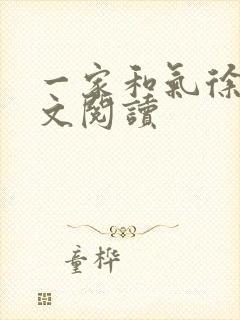 一家和氣徐
文閱讀
童桦